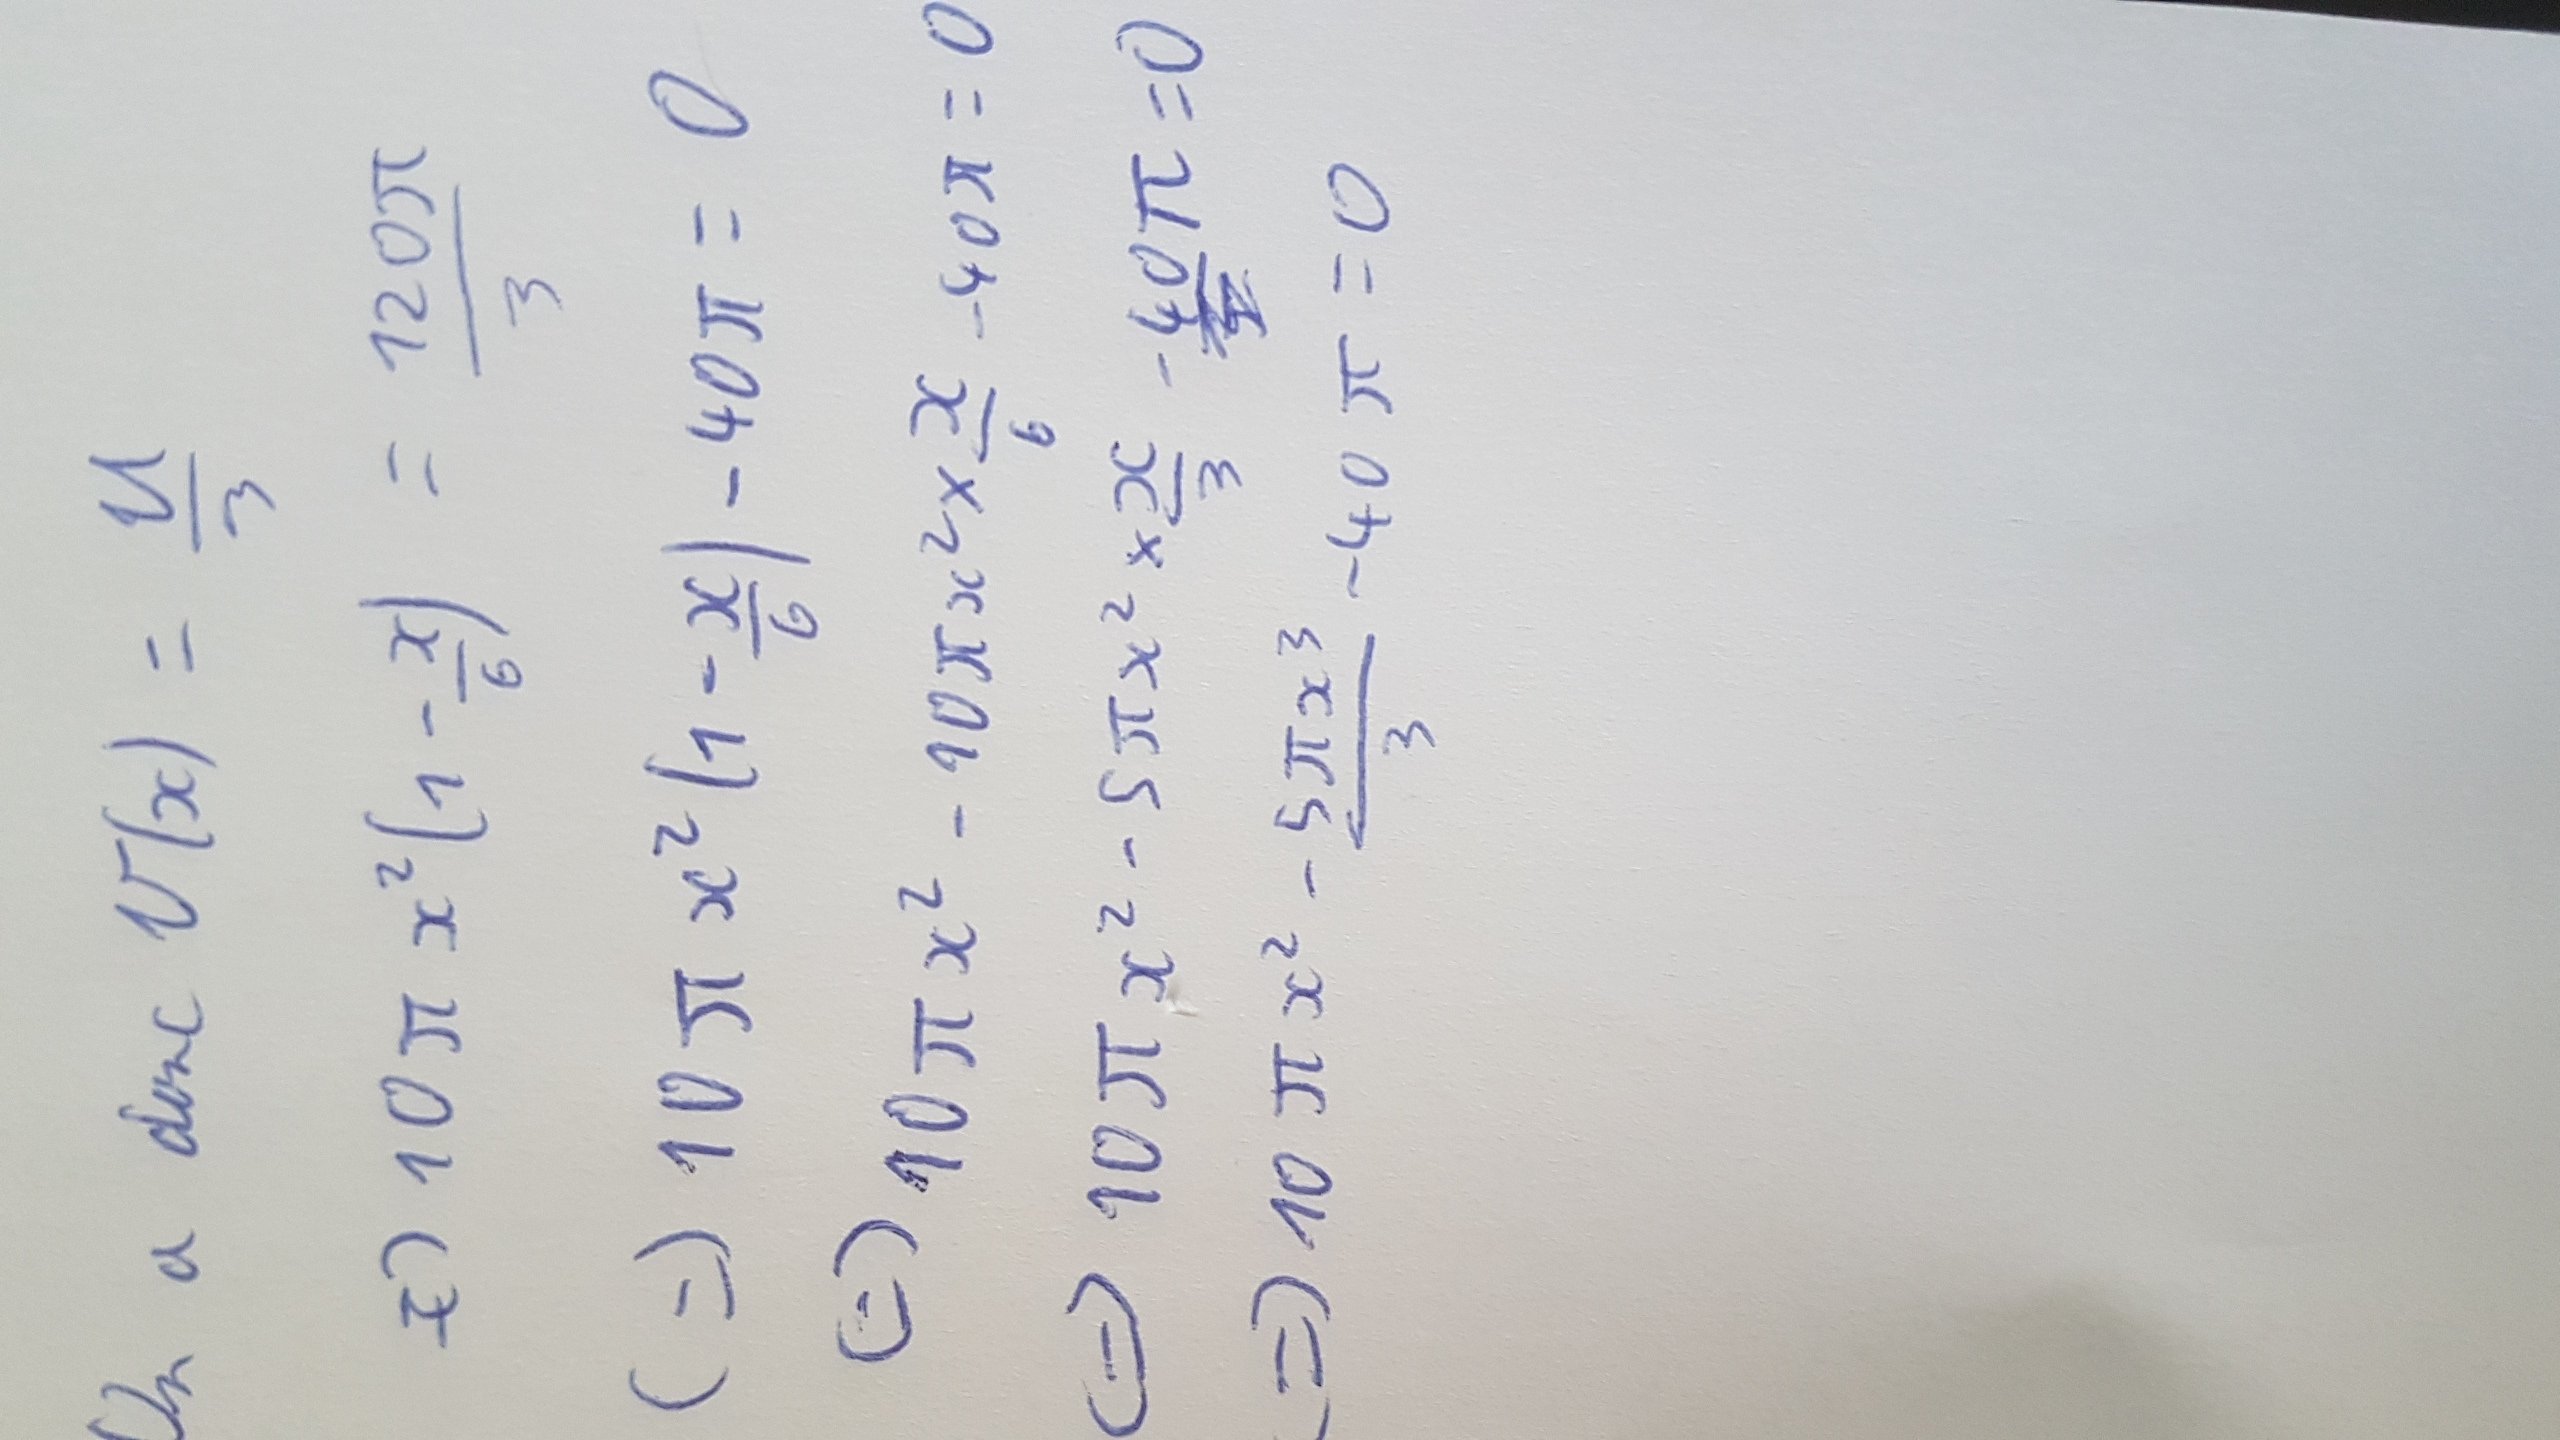 On a donc V(x) = V/3
⇔ 10πx²(1 - x/6) = 120π/3
(=) 10πx²(1 - x/6) - 40π = 0
(=) 10πx² - 10πx² × x/6 - 40π = 0
(=) 10πx² - 5πx² × x/3 - 40π = 0
(=) 10πx² - 5πx³/3 - 40π = 0